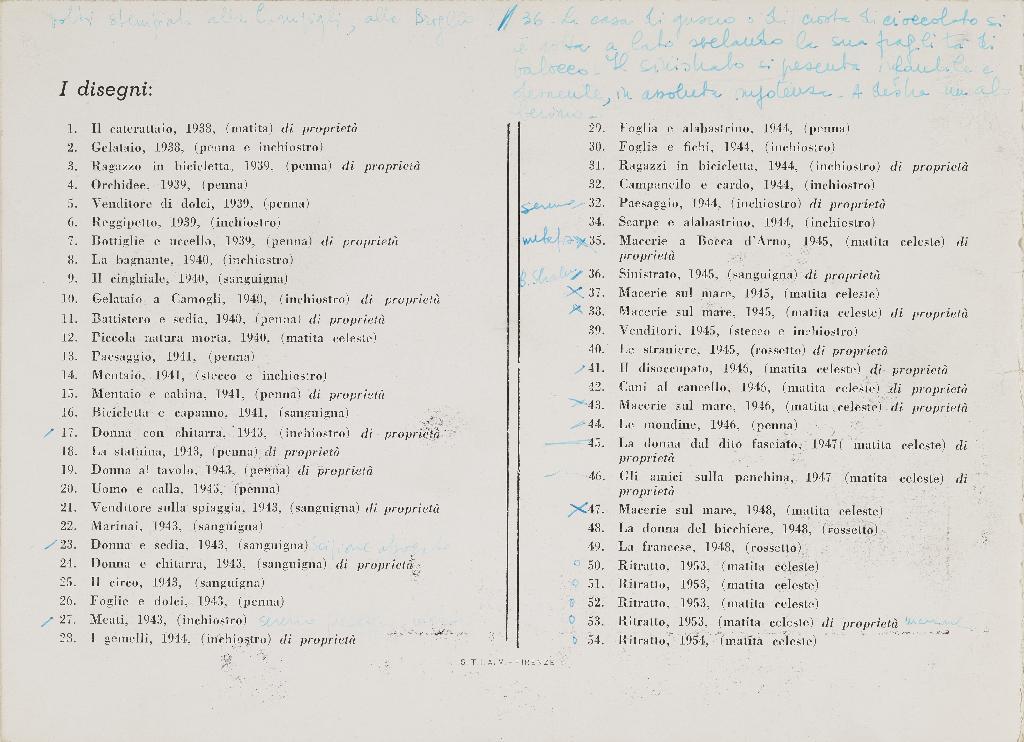 volti stampata alla Campigli, alla Broglio
// 36 - La casa di guscio o di crosta di cioccolato si
è rotta a lato svelando la sua fragilità di
balocco. Il sinistrato si presenta
demente, in assoluta impotenza. A destra un al
berino.
I disegni:
1. Il caterattaio, 1938, (matita) di proprietà
2. Gelataio, 1938, (penna e inchiostro)
3. Ragazzo in bicicletta, 1939, (penna) di proprietà
4. Orchidee, 1939, (penna)
5. Venditore di dolci, 1939, (penna)
6. Reggipetto, 1939, (inchiostro)
7. Bottiglie e uccello, 1939, (penna) di proprietà
8. La bagnante, 1940, (inchiostro)
9. Il cinghiale, 1940, (sanguigna)
10. Gelataio a Camogli, 1940, (inchiostro) di proprietà
11. Battistero e sedia, 1940, (penna) di proprietà
12. Piccola natura morta, 1940, (matita celeste)
13. Paesaggio, 1941, (penna)
14. Mentaio, 1941, (stecco e inchiostro)
15. Mentaio e cabina, 1941, (penna) di proprietà
16. Bicicletta e capanno, 1941, (sanguigna)
17. Donna con chitarra, 1943, (inchiostro) di proprietà
18. La statuina, 1943, (penna) di proprietà
19. Donna al tavolo, 1943, (penna) di proprietà
20. Uomo e calla, 1943, (penna)
21. Venditore sulla spiaggia, 1943, (sanguigna) di proprietà
22. Marinai, 1943, (sanguigna)
23. Donna e sedia, 1943, (sanguigna)
24. Donna e chitarra, 1943, (sanguigna) di proprietà
25. Il circo, 1943, (sanguigna)
26. Foglie e dolci, 1943, (penna)
27. Meati, 1943, (inchiostro)
28. I gemelli, 1944, (inchiostro) di proprietà
29. Foglia e alabastrino, 1944, (penna)
30. Foglie e fichi, 1944, (inchiostro)
31. Ragazzi in bicicletta, 1944, (inchiostro) di proprietà
32. Campanello e cardo, 1944, (inchiostro)
32. Paesaggio, 1944, (inchiostro) di proprietà
34. Scarpe e alabastrino, 1944, (inchiostro)
35. Macerie a Bocca d'Arno, 1945, (matita celeste) di
proprietà
36. Sinistrato, 1945, (sanguigna) di proprietà
37. Macerie sul mare, 1945, (matita celeste)
38. Macerie sul mare, 1945, (matita celeste) di proprietà
39. Venditori, 1945, (stecco e inchiostro)
40. Le straniere, 1945, (rossetto) di proprietà
41. Il disoccupato, 1946, (matita celeste) di proprietà
42. Cani al cancello, 1946, (matita celeste) di proprietà
43. Macerie sul mare, 1946, (matita celeste) di proprietà
44. Le mondine, 1946, (penna)
45. La donna dal dito fasciato, 1947( matita celeste) di
proprietà
46. Gli amici sulla panchina, 1947 (matita celeste) di
proprietà
47. Macerie sul mare, 1948, (matita celeste)
48. La donna del bicchiere, 1948, (rossetto)
49. La francese, 1948, (rossetto)
50. Ritratto, 1953, (matita celeste)
51. Ritratto, 1953, (matita celeste)
52. Ritratto, 1953, (matita celeste)
53. Ritratto, 1953, (matita celeste) di proprietà
54. Ritratto, 1954, (matita celeste)
S.T.I.A.V. - FIRENZE